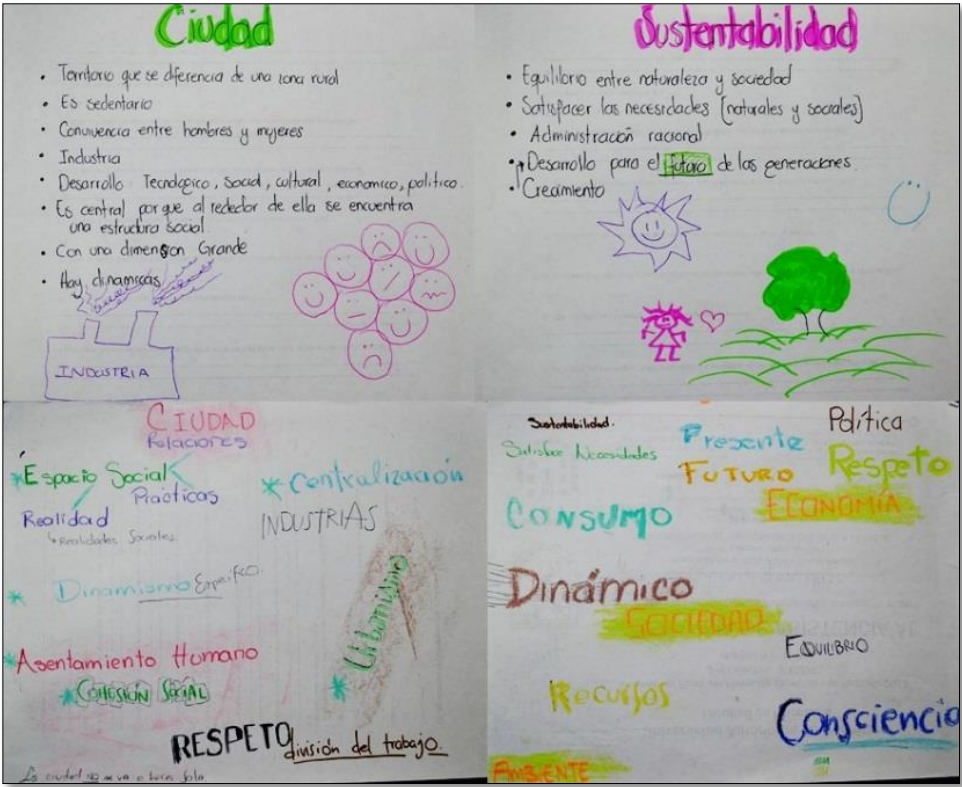 Ciudad
• Territorio que se diferencia de una zona rural
• Es sedentario
• Convivencia entre hombres y mujeres
• Industria
• Desarrollo: Tecnologico, Social, cultural, economico, politico.
• Es central porque al rededor de ella se encuentra
una estructura social.
• Con una dimension Grande
• Hay dinamicas
INDUSTRIA
Sustentabilidad
• Equilibrio entre naturaleza y sociedad
• Satisfacer las necesidades [naturales y sociales]
• Administración racional
• Desarrollo para el futuro de las generaciones.
• Crecimiento
CIUDAD
Relaciones
* Espacio Social
Prácticas
Realidad
Realidades Sociales
* Centralización
INDUSTRIAS
* Dinamismo Específico.
* Urbanismo
* Asentamiento Humano
* COHESIÓN SOCIAL
RESPETO
división del trabajo.
La ciudad no se va a hacer sola
Sustentabilidad.
Satisface Necesidades
Presente
FUTURO
Política
Respeto
ECONOMÍA
CONSUMO
Dinámico
SOCIEDAD
EQUILIBRIO
Recursos
Consciencia
AMBIENTE